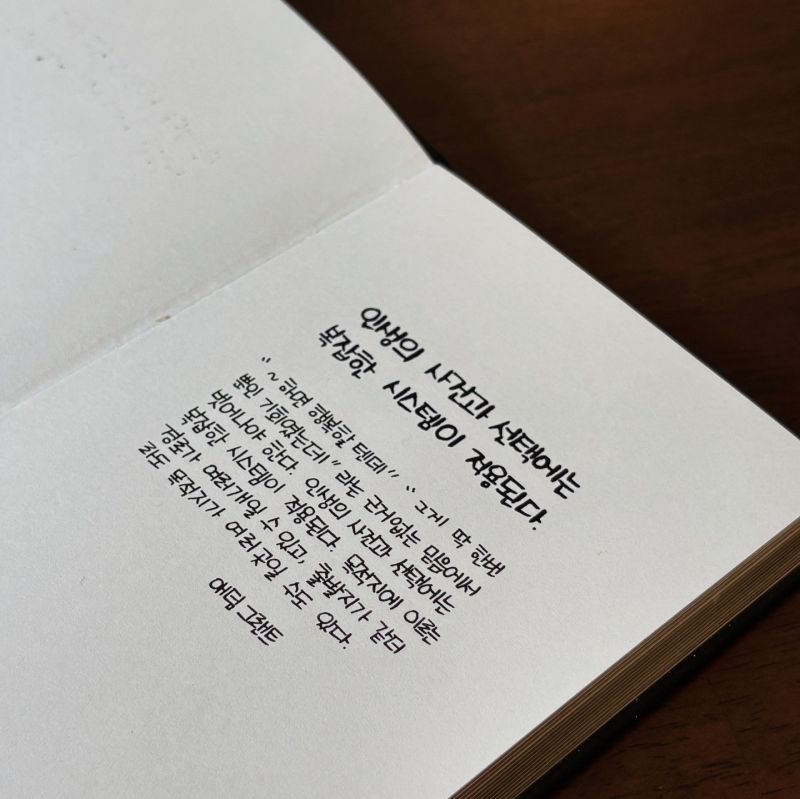 인생의 사건과 선택에는
복잡한 시스템이 적용된다.
"~하면 행복할 텐데" "그게 딱 한번
뿐인 기회였는데"라는 근거없는 믿음에서
벗어나야 한다. 인생의 사건과 선택에는
복잡한 시스템이 적용된다. 목적지에 이르는
경로가 여러개일 수 있고, 출발지가 같더
라도 목적지가 여러 곳일 수도 있다.
애덤 그랜트